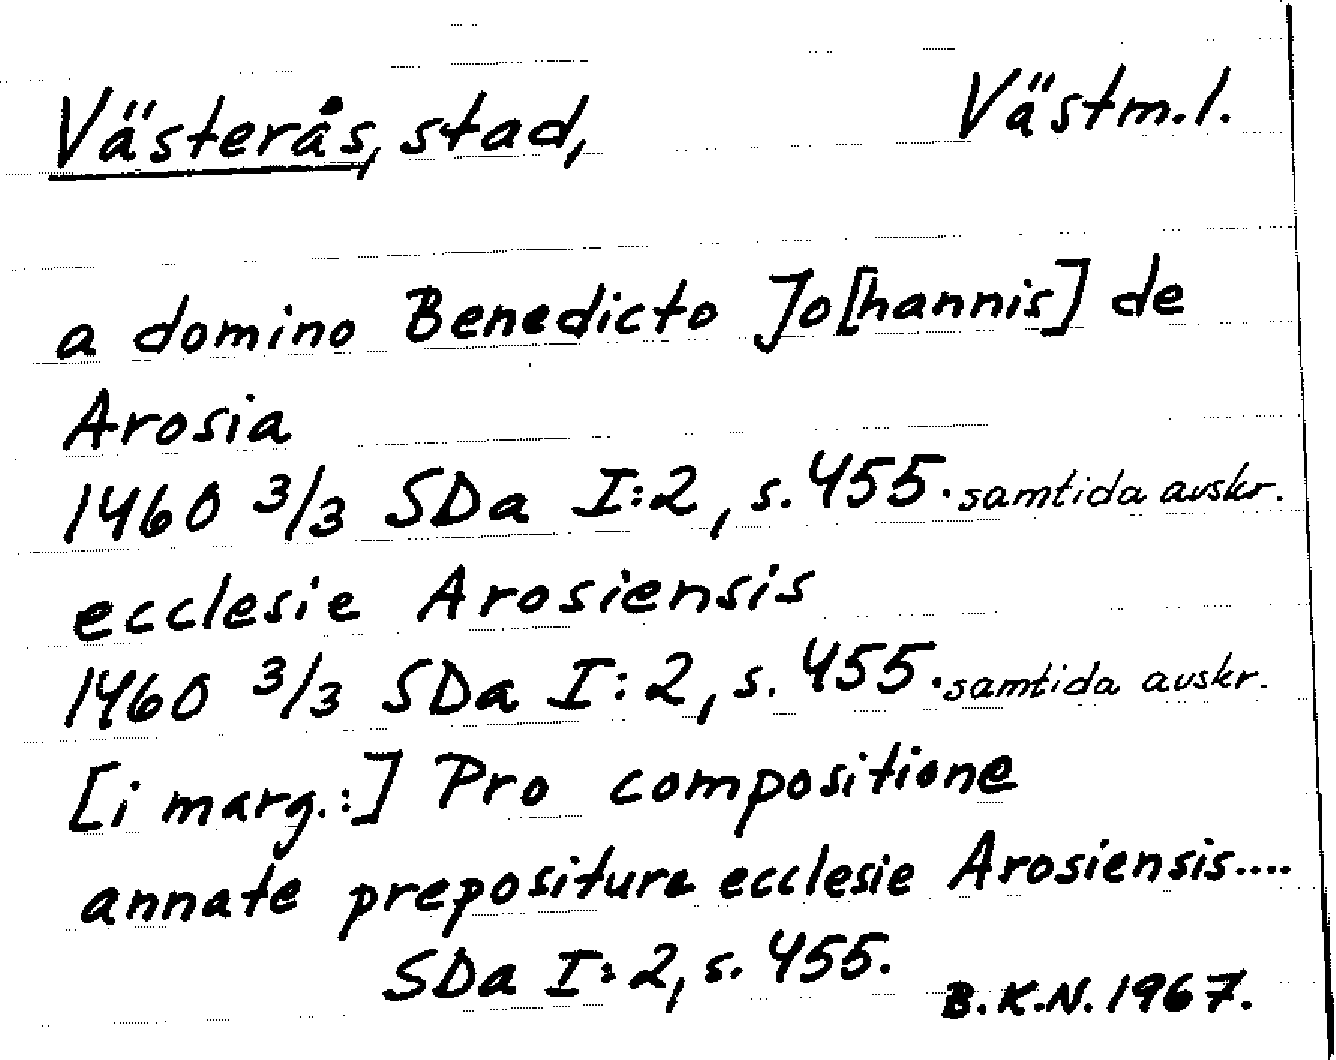 Västerås, stad, Västm.l.
a domino Benedicto Jo[hannis] de
Arosia
1460 3/3 SDa I:2, s. 455. samtida avskr.
ecclesie Arosiensis
1460 3/3 SDa I:2, s. 455. samtida avskr.
[i marg.:] Pro compositione
annate prepositure ecclesie Arosiensis....
SDa I:2, s. 455.
B.K.N. 1967.